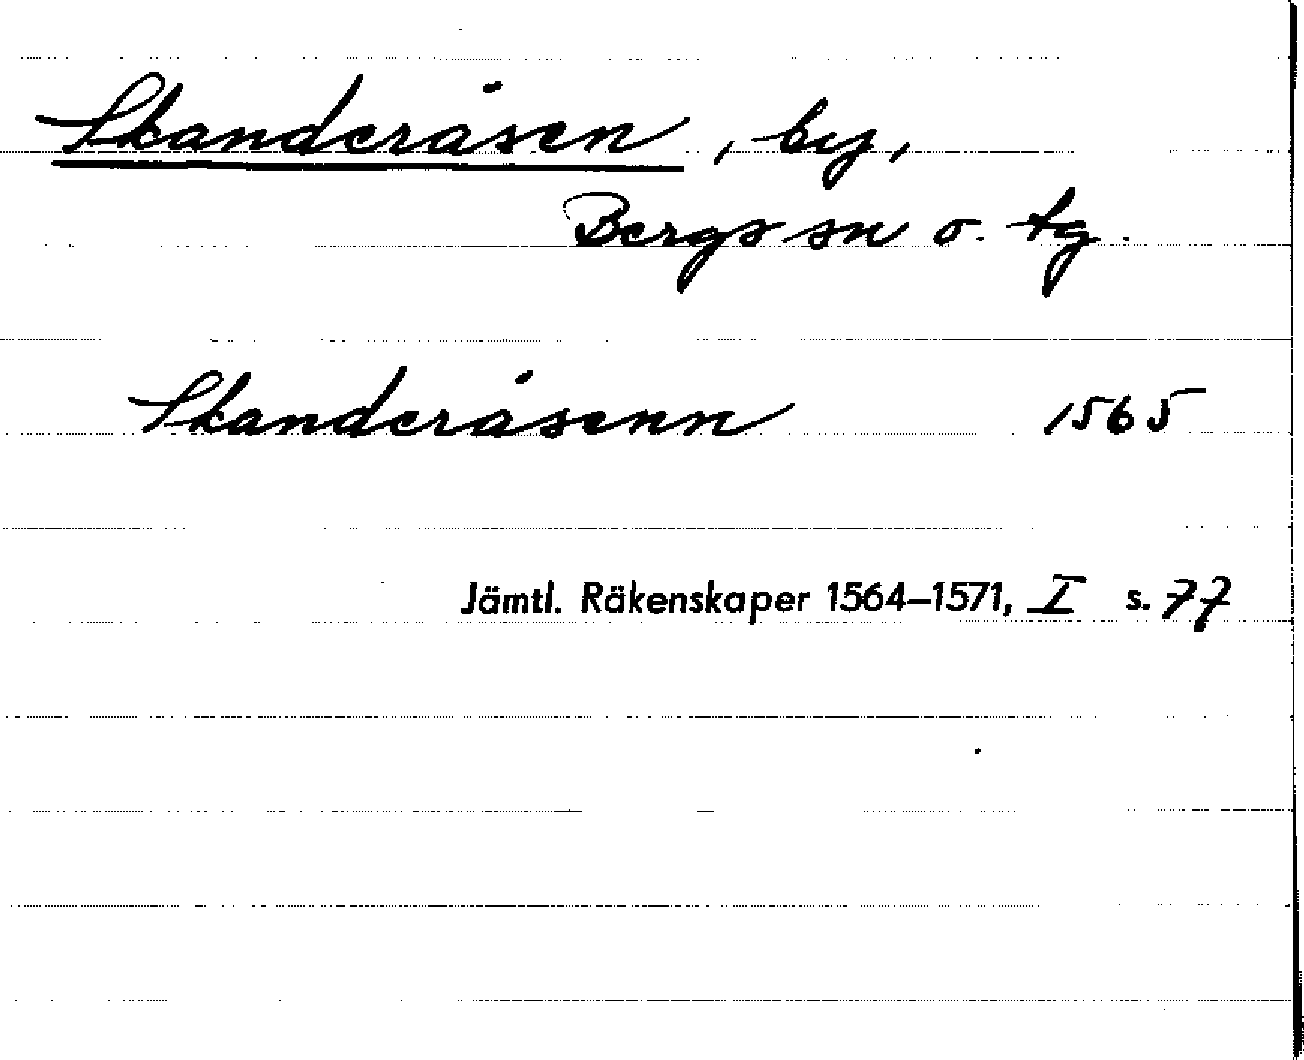 Skanderåsen, by,
Bergs sn o. tg.
Skanderåsenn 1565
Jämtl. Räkenskaper 1564–1571, I s. 77